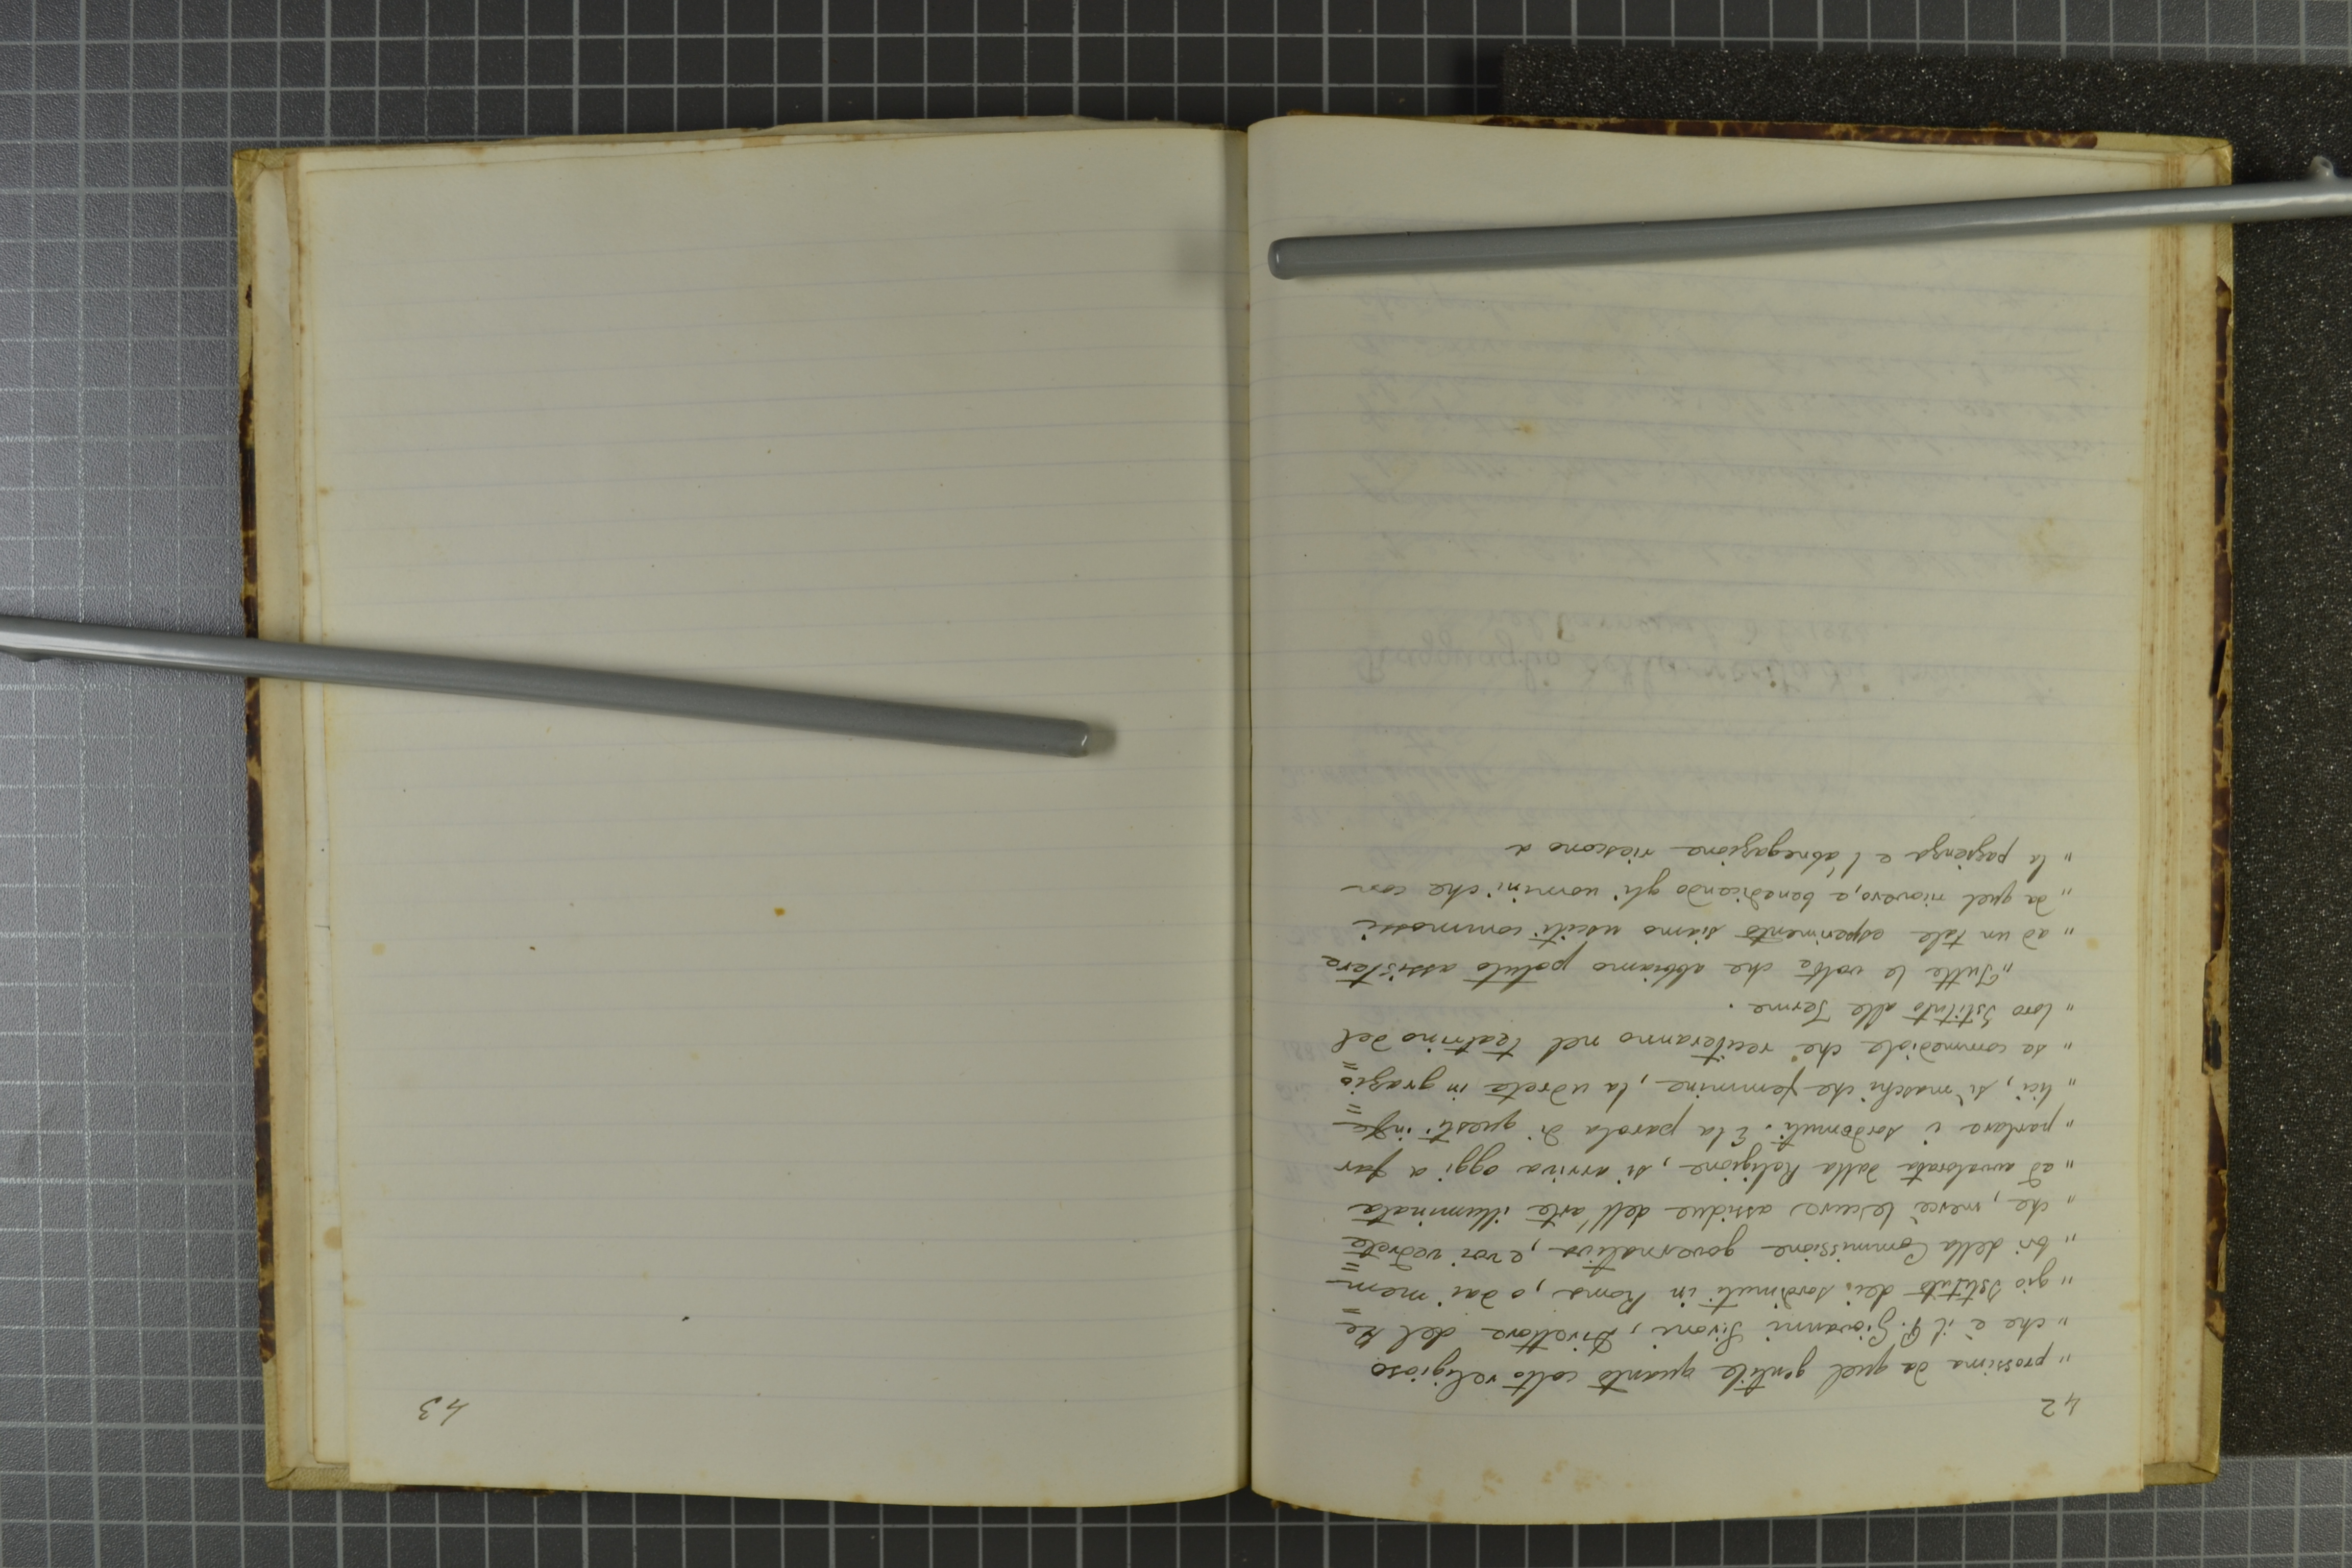 42
„ prossima da quel gentile quanto colto religioso
„ che è il P. Giovanni Livoni, Direttore del Re=
„ gio Istituto dei sordimuti in Roma, o dai mem=
„ bri della Commissione governativa, e voi vedrete
„ che, mercè le cure assidue dell'arte illuminata
„ ed avvalorata dalla Religione, si arriva oggi a far
„ parlare i sordomuti. E la parola di questi infe=
„ lici, sì maschi che femmine, la udrete in grazio=
„ se commediole che reciteranno nel teatrino del
„ loro Istituto alle Terme.
„ Tutte le volte che abbiamo potuto assistere
„ ad un tale esperimento siamo usciti commossi
„ da quel ricovero, e benedicendo gli uomini che con
„ la pazienza e l'abnegazione riescono a
43